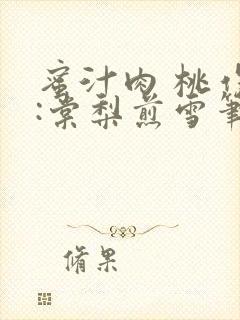 蜜汁肉桃作
:棠梨煎雪笔
脩果